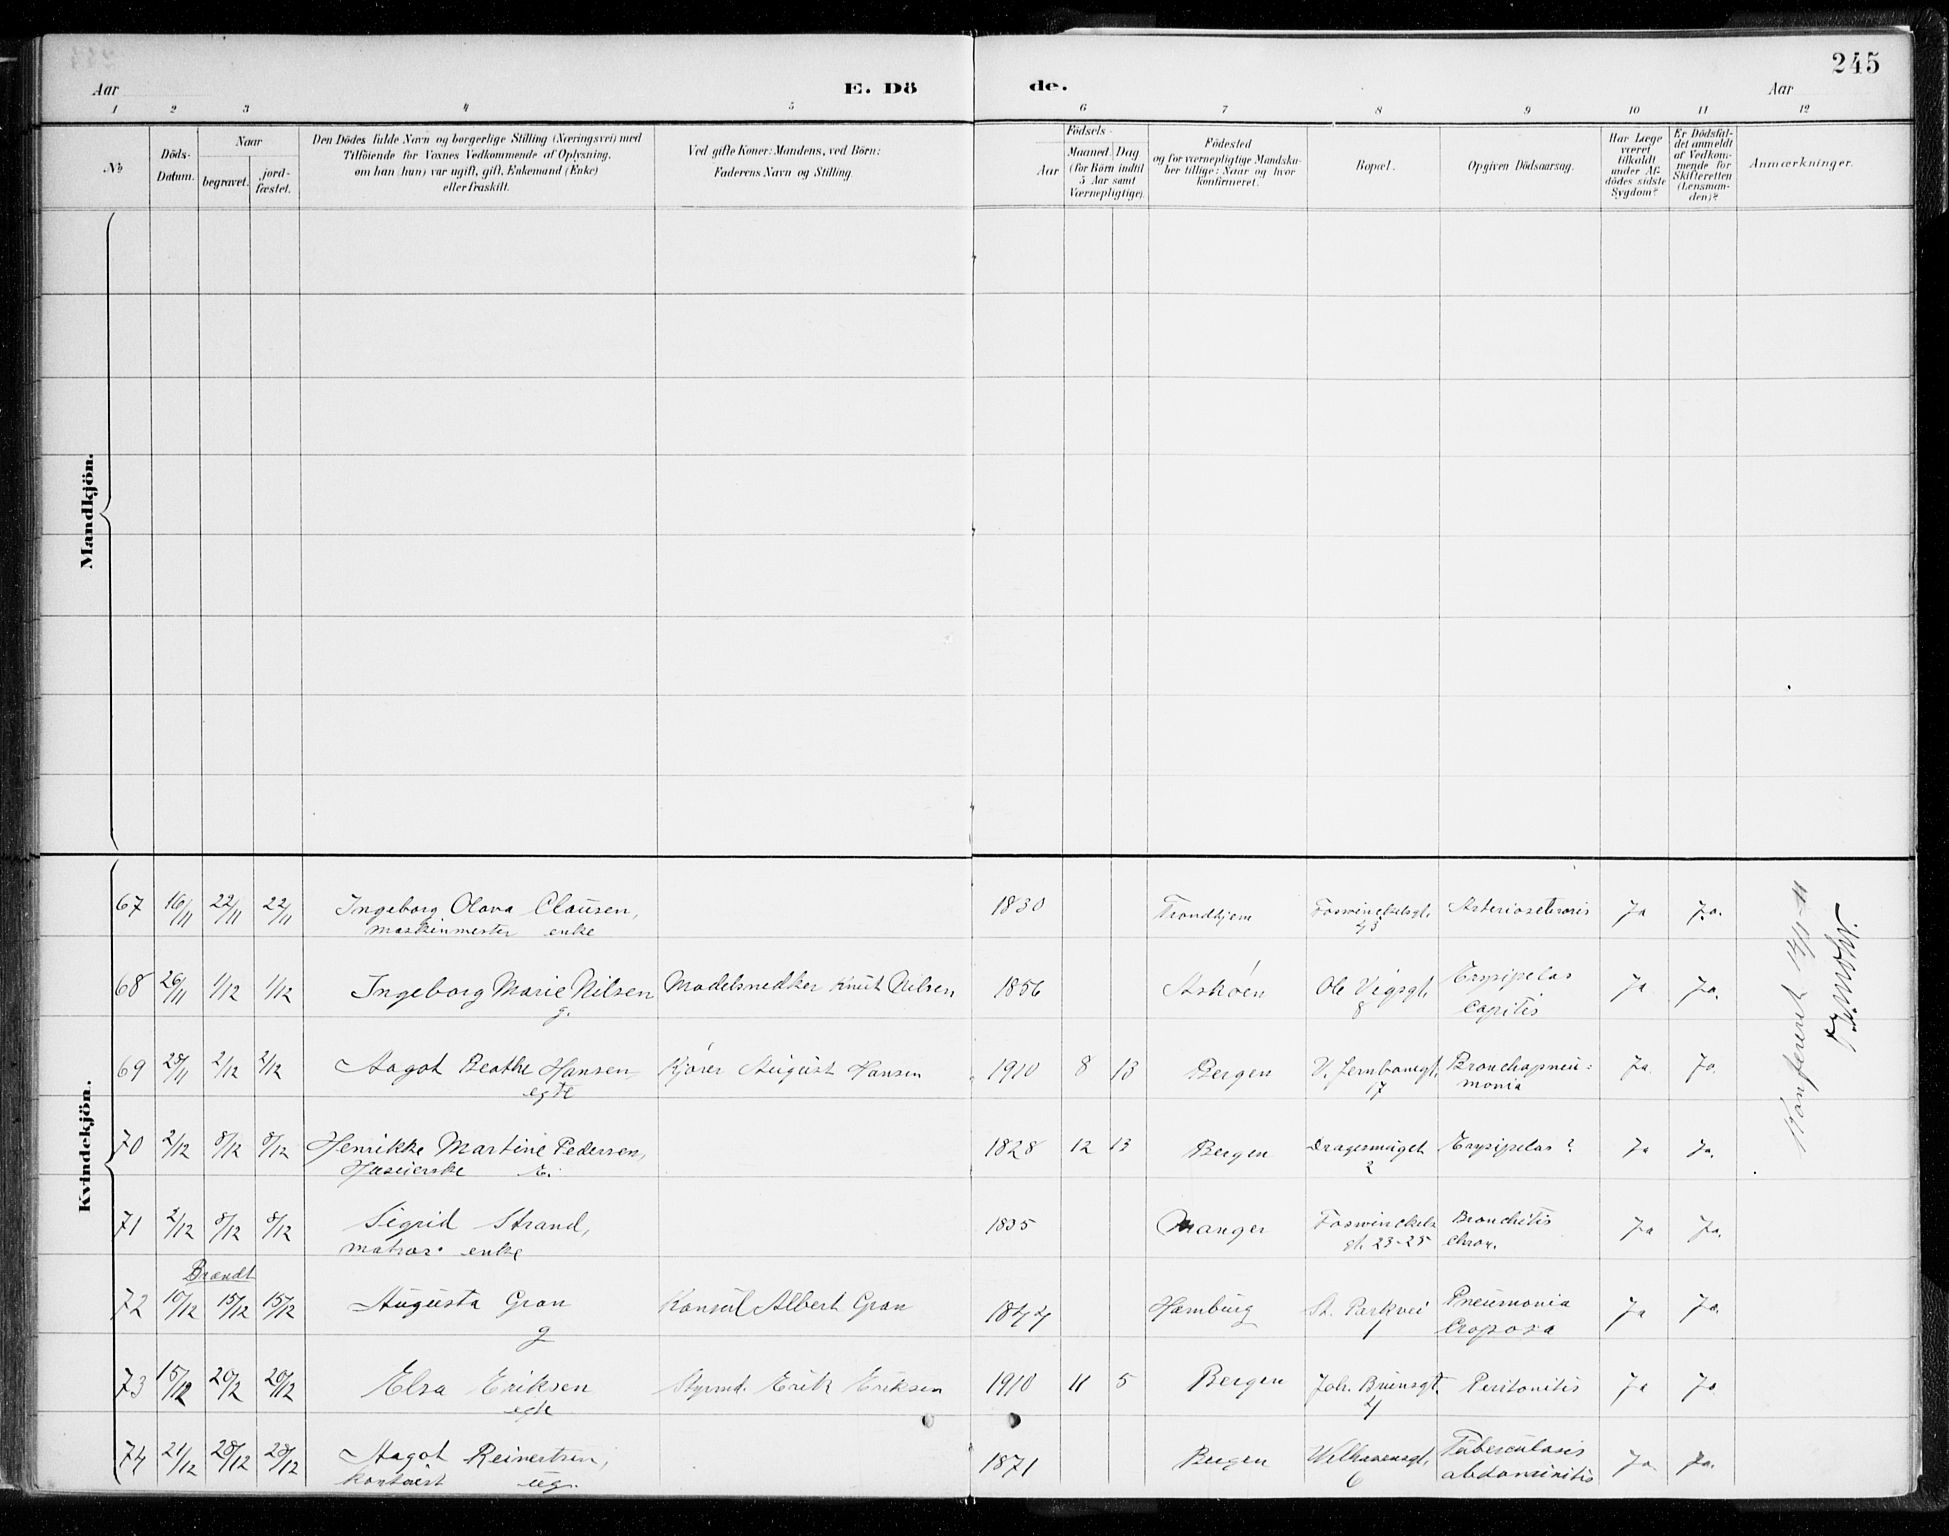 245
Aar
E. Dö
de.
Aar
1 2 3 4 5 6 7 8 9 10 11 12
No
Döds-
Datum.
Naar
begravet.
jord-
fæstet.
Den Dödes fulde Navn og borgerlige Stilling (Næringsvei) med
Tilföiende for Voxnes Vedkommende af Oplysning,
om han (hun) var ugift, gift, Enkemand (Enke)
eller fraskilt.
Ved gifte Koner: Mandens, ved Börn:
Faderens Navn og Stilling.
Födsels-
Aar
Maaned
Dag
(for Börn indtil
5 Aar samt
Værnepligtige).
Födested
og for værnepligtige Mandska-
ber tillige: Naar og hvor
konfirmeret.
Bopæl.
Opgiven Dödsaarsag.
Har Læge
været
tilkaldt
under Af-
dödes sidste
Sygdom?
Er Dödsfal-
det anmeldt
af Vedkom-
mende for
Skifteretten
(Lensman-
den)?
Anmærkninger.
Mandkjön.
Kvindekjön.
67 16/11 22/11 22/11 Ingeborg Olava Clausen, 1830 Trondhjem Foswinckelsgt. Ja Ja.
maskinmester enke
68 26/11 1/12 1/12 Ingeborg Marie Nilsen Modelsnedker Knut Nilsen 1856 Askøen Ole Vigsgt. Erysipelas Ja Ja.
g. 8 Capitis
69 25/11 2/12 2/12 Aagot Beathe Hansen Kjører August Hansen 1910 8 13 Bergen V. Jernbanegt. Bronchopneu: Ja Ja.
egte 17 monia
70 2/12 8/12 8/12 Henrikke Martine Pedersen, 1828 12 13 Bergen Dragesmuget Erysipelas? Ja Ja.
Huseierske E. 2
71 2/12 8/12 8/12 Sigrid Strand, 1835 Manger Foswinckels Bronchitis Ja Ja.
matros. enke gt. 23-25 Chron.
Brændt
72 10/12 15/12 15/12 Augusta Gran Konsul Albert Gran 1844 Hamburg St. Parkvei Pneumonia Ja Ja.
g 1 Croposa
73 15/12 20/12 20/12 Elsa Eriksen Styrmd. Erik Eriksen 1910 11 5 Bergen Joh. Brunsgt. Peritonitis Ja Ja
egte 4
74 21/12 28/12 28/12 Aagot Reinertsen, 1871 Bergen Welhavensgt. Tuberculosis Ja Ja.
kontorist ug. 6 abdominitis
Konfereret